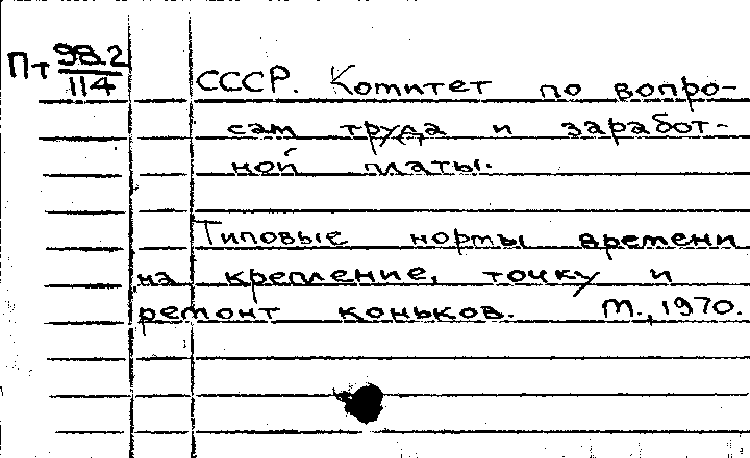 Пт 98.2
114
СССР. Комитет по вопро-
сам труда и заработ-
ной платы.
Типовые нормы времени
на крепление, точку и
ремонт коньков. М., 1970.